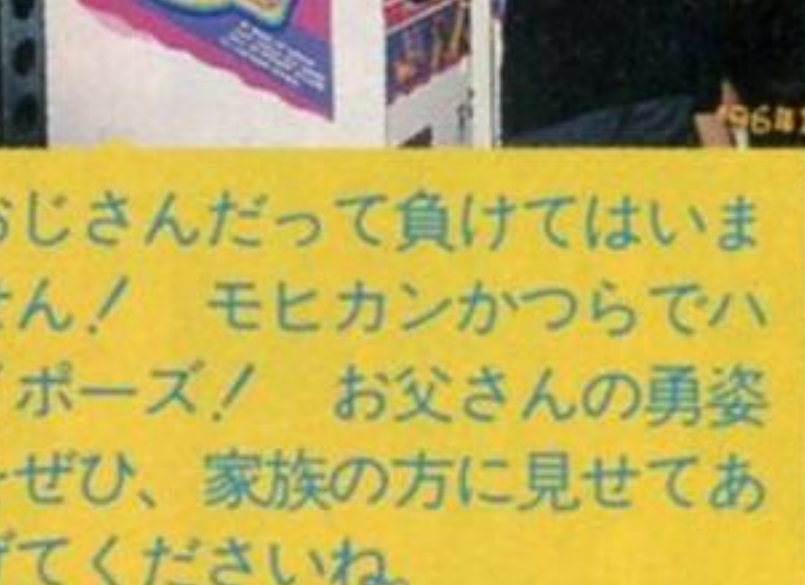 '96年
おじさんだって負けてはいま
せん! モヒカンかつらでハ
イポーズ! お父さんの勇姿
をぜひ、家族の方に見せてあ
げてくださいね。